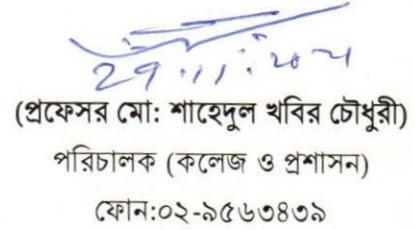 29.11.2021
(প্রফেসর মো: শাহেদুল খবির চৌধুরী)
পরিচালক (কলেজ ও প্রশাসন)
ফোন:০২-৯৫৬৩৪৩৯